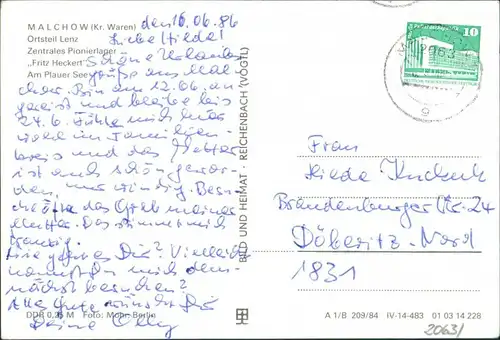 MALCHOW (Kr. Waren)
Ortsteil Lenz
Zentrales Pionierlager
„Fritz Heckert"
Am Plauer See
den 16.06.86
Liebe Hilde!
Schöne Urlaubs-
grüße aus Mal-
chow. Bin am 12.06. an-
gereist und bleibe bis
24.6. Fühle mich hier
wohl im Familien-
kreis und das Wetter
ist auch schön gewor-
den, nur windig. Besu-
chte das Grab meiner
Mutter. Das stimmt mich
traurig.
Wie geht es Dir? Vielleicht
kommst Du mich dem-
nächst besuchen?
Alle Gute wünscht Dir
Deine Olly
DDR 0,25 M Foto: Mohr, Berlin
BILD UND HEIMAT · REICHENBACH (VOGTL)
10
Frau
Hilde
Brandenburger Str. 24
Döberitz-Nord
1831
A 1/B 209/84 IV-14-483 01 03 14 228
2063/